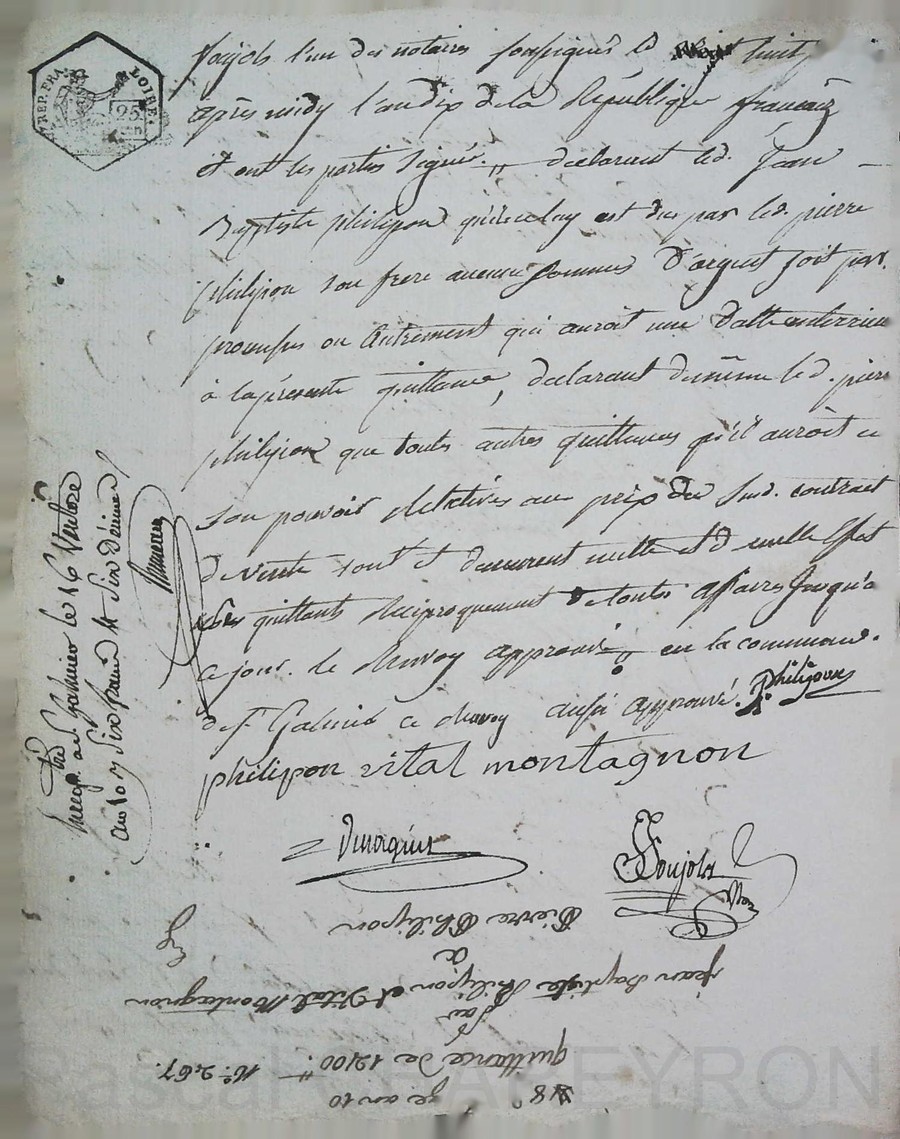 REP. FRA. LOIRE
25
Soujols l'un des notaires soussignés le huit
après midy l'an dix de la République francaise
et ont les parties signé. declarent led. Jean
Baptiste philipon qu'il luy est du par led. pierre
philipon son frere aucune sommes d'argent soit par
promesses ou Autrement qui auroit une datte anterrieure
à la présente quittance, declarant de même led. pierre
philipon que toutes autres quittances qu'il auroit a
son pouvoir Relatives au prix du Sud. contrait
de vente sont et demeurent nulle et d nulle Effet
quittants Réciproquement de toutes affaires Jusqu'a
ce jour. le Renvoy approuvé, en la commune
de St Galmier ce renvoy aussi approuvé. Philipon
philipon vital montagnon
Soujols Nre
Enregé a St galmier le 16 Ventose
an 10
Pierre Philipon
a
jean Baptiste Philipon et Vital Montagnon
Par
quittance de 1200# No. 267.
8e an 10